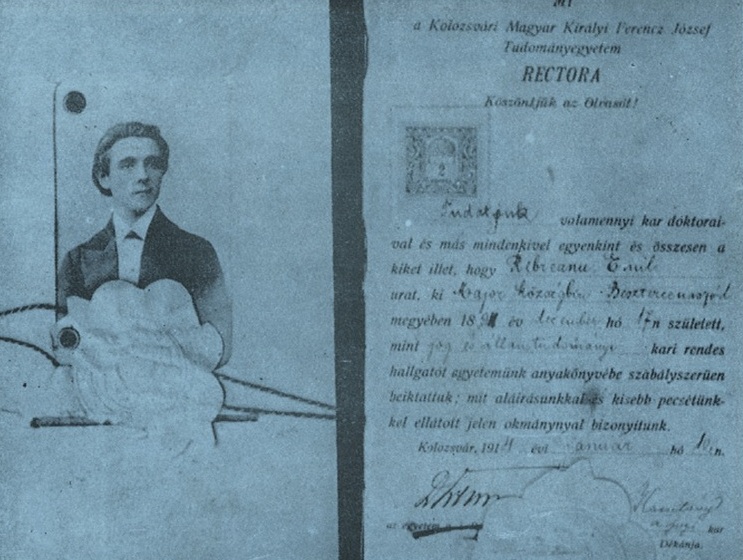 MI
a Kolozsvári Magyar Királyi Ferencz József
Tudományegyetem
RECTORA
Köszöntjük az Olvasót!
2
Tudatjuk valamennyi kar doktorai-
val és más mindenkivel egyenkint és összesen a
kiket illet, hogy Rebreanu Emil
urat, ki Major községben Besztercenaszód
megyében 1891 év december hó 17n született,
mint jog és államtudományi kari rendes
hallgatót egyetemünk anyakönyvébe szabályszerüen
beiktattuk; mit aláirásunkkal és kisebb pecsétünk-
kel ellátott jelen okmánynyal bizonyitunk.
Kolozsvár, 1914 évi januar hó 10n.
az egyetem
kar
Dékánja.